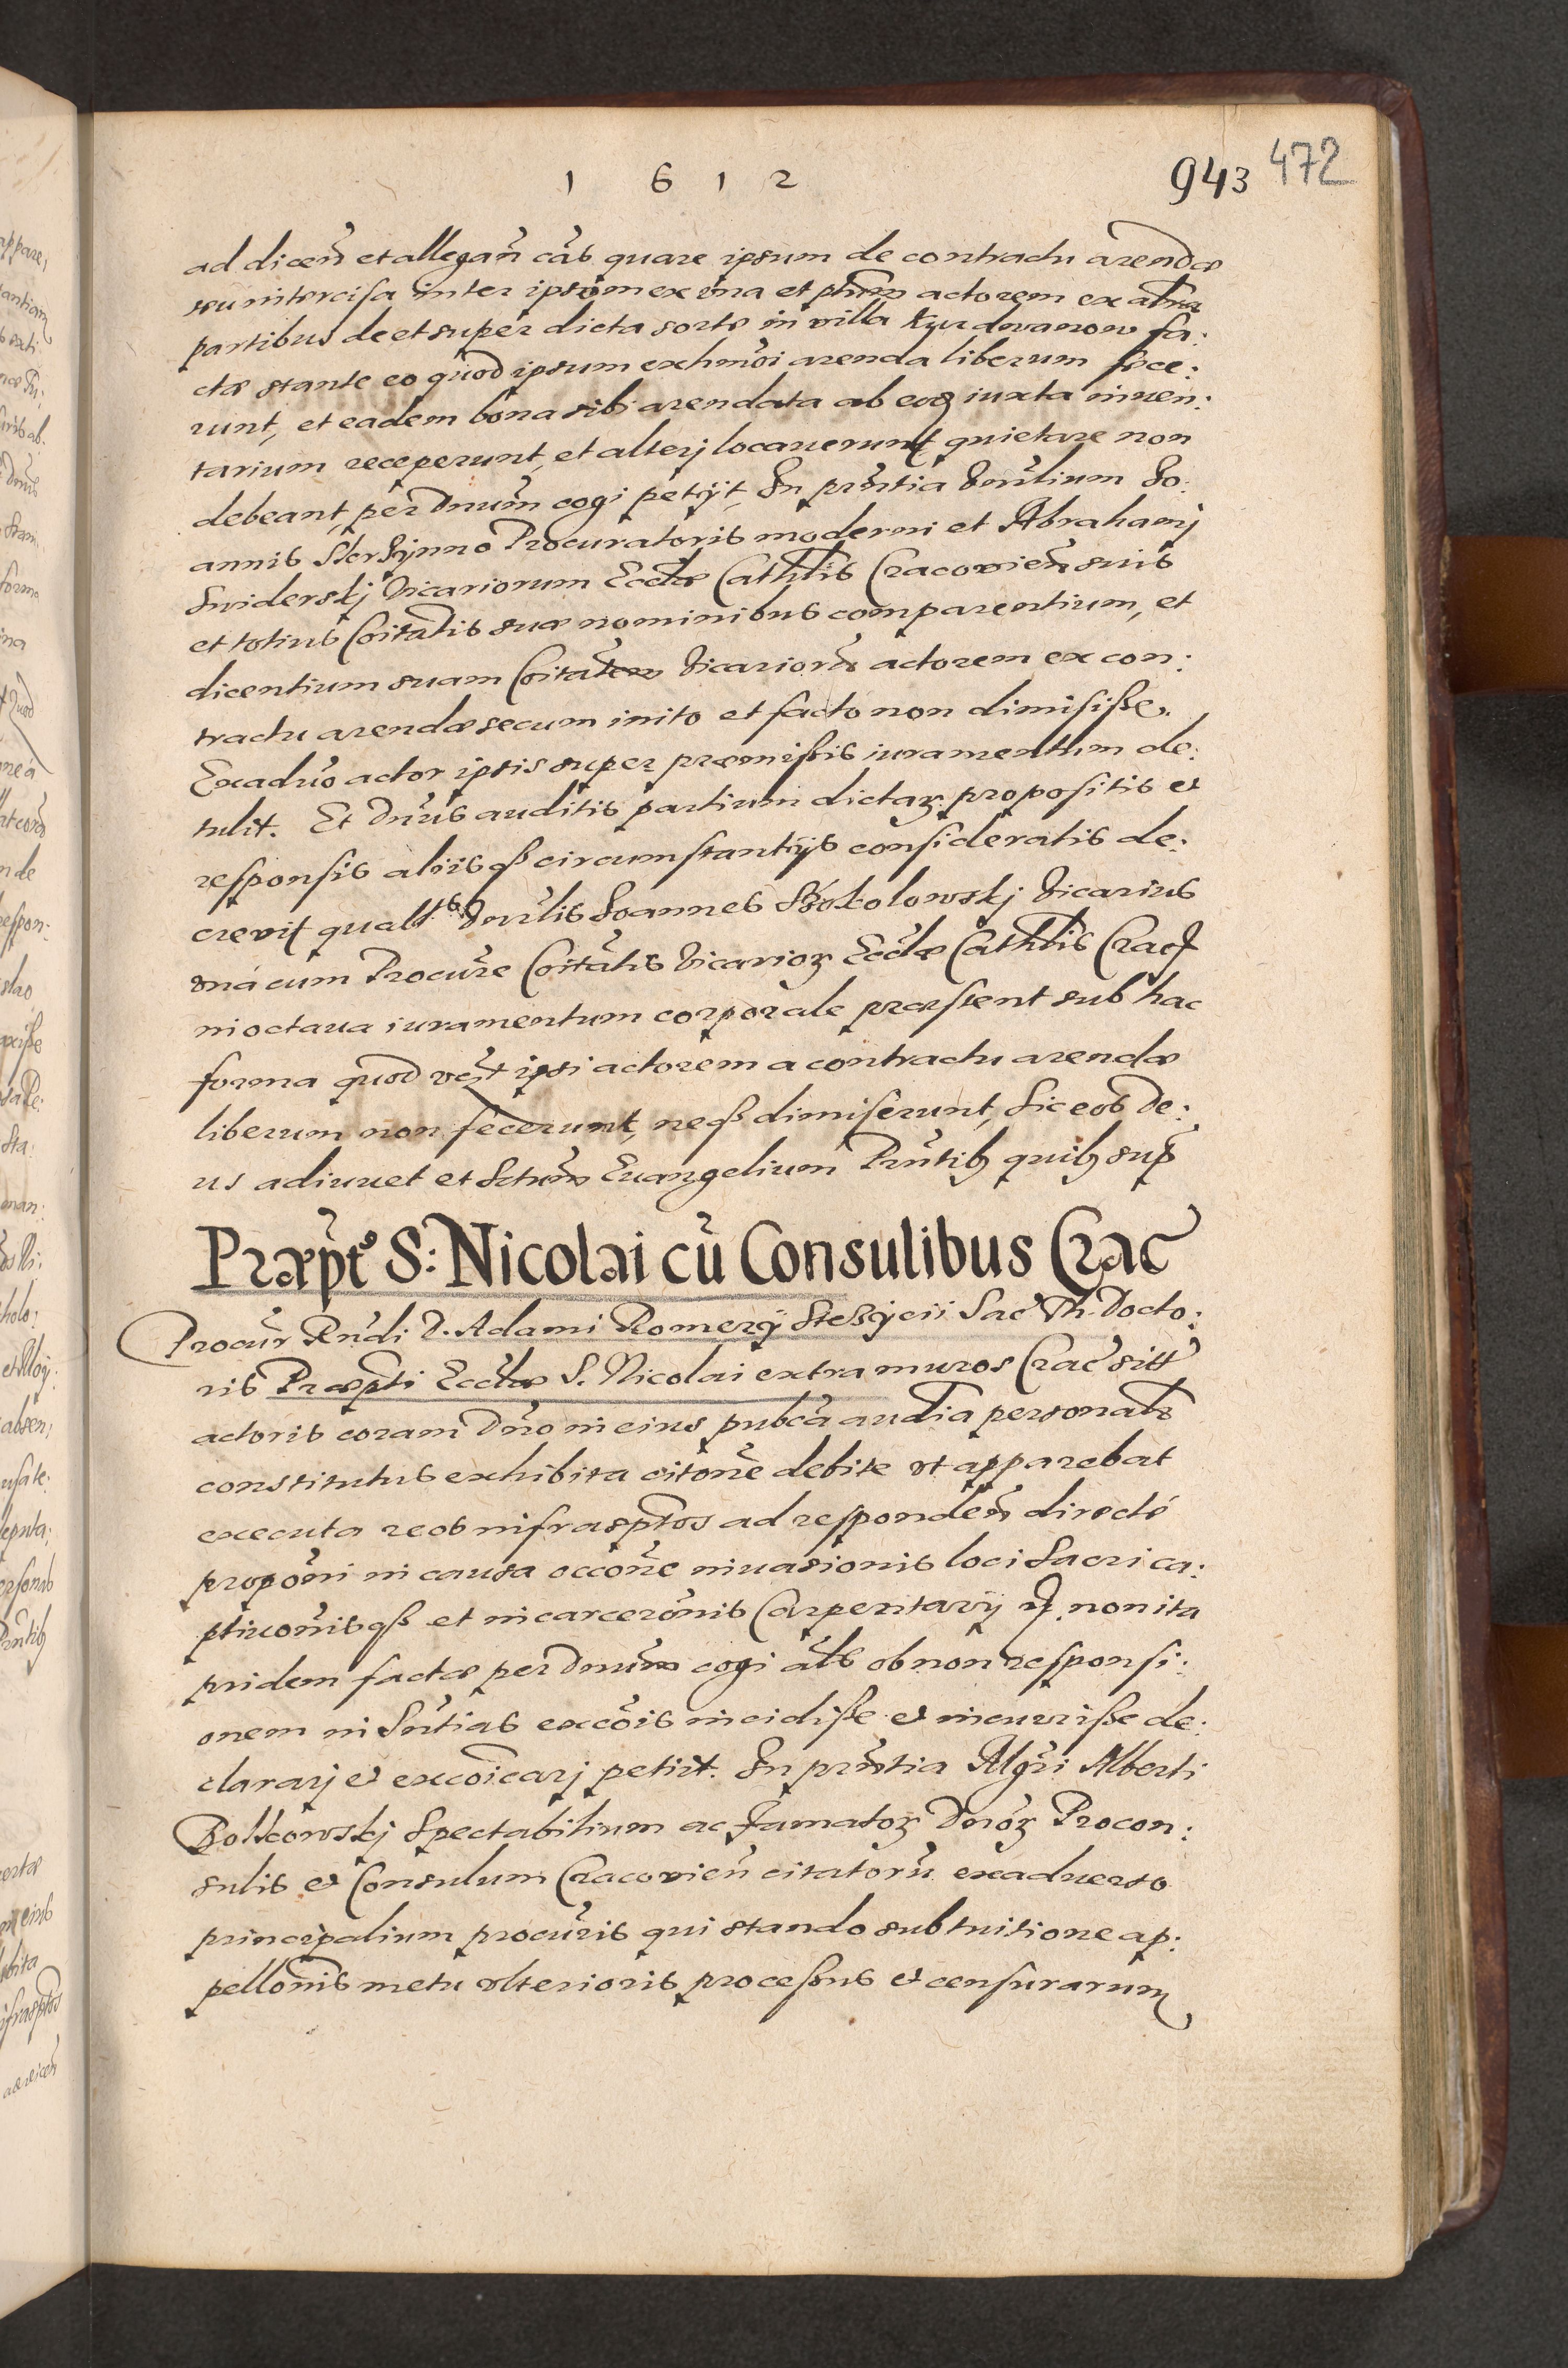 1 6 1 2
943 472
ad diceñ et allegañ cãs quare ipsum de contractu arendæ
seu intercisa inter ipsum ex una et pñtem actorem ex altera
partibus de et super dicta sorte in villa Kyrdwanow fa:
ctæ stante eo quod ipsum ex hmõi arenda liberum fece:
runt, et eadem bona sibi arendata ab eoq iuxta inuen:
tarium receperunt, et alterj locauerunt quietare non
debeant, per Dnum cogi petijt, In pñtia Vnrlium Jo:
annis Procuratoris moderni et Abrahamj
Swiderskj Vicariorum Ecclæ Cathlis Cracovieñ suis
et totius Coitatis suæ nominibus comparentium, et
dicentium suam Coitatem Vicarioru actorem ex con:
tractu arendæ secum inito et facto non dimisisse.
Exaduo actor ipsis super præmissis iuramentum de:
tulit. Et Dnus auditis partium dictaz propositis et
responsis aliisqß circumstantijs consideratis de:
crevit qualts Vnrlis Joannes Sokolowskj Vicarius
vná cum Procure Coitatis Vicarioz Ecclæ Cathlis Crac
in octaua iuramentum corporale præstent sub hac
forma quod ipsi actorem a contractu arendæ
liberum non fecerunt, neqß dimiserunt, sic eos De:
us adiuuet et Sctum Euangelium Pñtibz quibz sup
Præpts S: Nicolai cũ Consulibus Crac
Procur Rndi D. Adami Romerij Stezycij Sac Th. Docto:
ris Præpti Ecclæ S. Nicolai extra muros Crac sitt
actoris coram Dno in eius pubca audia personalr
constitutus exhibita citone debite vt apparebat
executa reos infrasptos ad respondeñ directé
propõni in causa occone inuasionis loci sacri ca:
ptiuonisqß et incarceronis Carpentarij non ita
pridem factæ per Dnum cogi als ob non responsi:
onem in Sntias excõis incidisse et incurrisse de:
clararj et excoicarj petiit. In pñtia Mgri Alberti
Bolkowskj Spectabilium ac famatoz Dnoz Procon:
sulis et Consulum Cracovieñ citatorũ exaduerso
principalium procuris qui stando sub tuitione ap:
pellonis metu vlterioris processus et censurarum